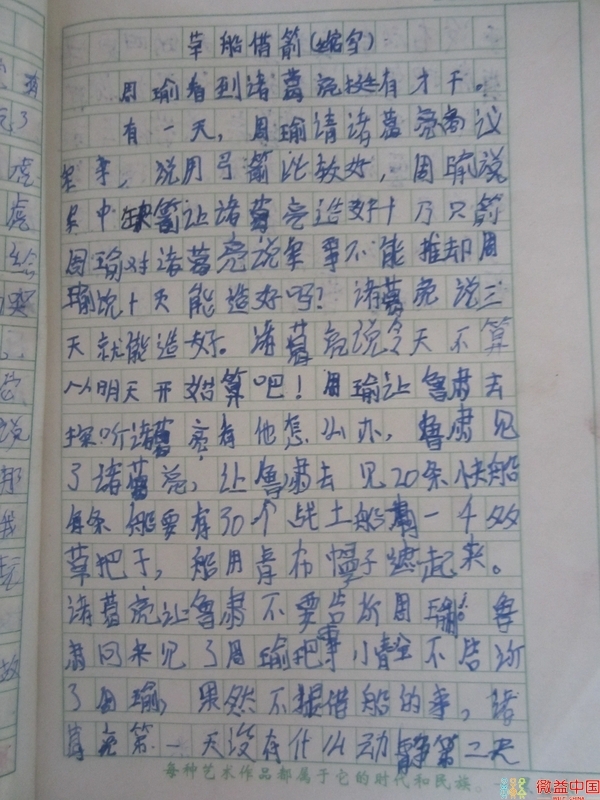 草船借箭(缩写)
周瑜看到诸葛亮挺有才干。
有一天,周瑜请诸葛亮商议
军事,说用弓箭比较好,周瑜说
军中缺箭让诸葛亮造好十万只箭
周瑜对诸葛亮说军事不能推却周
瑜说十天能造好吗?诸葛亮说三
天就能造好。诸葛亮说今天不算
从明天开始算吧!周瑜让鲁肃去
探听诸葛亮有他怎么办,鲁肃见
了诸葛亮,让鲁肃去见20条快船
每条船要有30个战士船有一千多
草把子,船用青布幔子遮起来。
诸葛亮让鲁肃不要告诉周瑜。鲁
肃回来见了周瑜把事告诉
了周瑜,果然不提借船的事,诸
葛亮第一天没有什么动静第二天
每种艺术作品都属于它的时代和民族。
微益中国